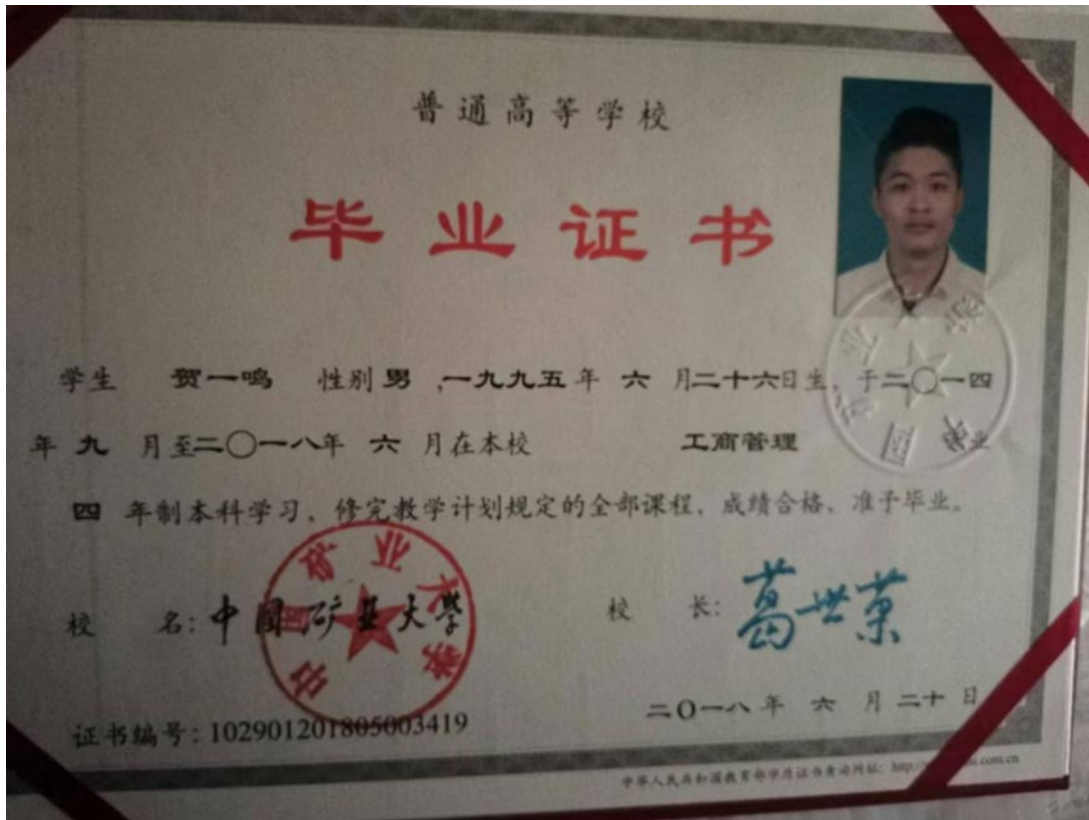 普通高等学校
毕业证书
学生 贺一鸣 性别 男 ,一九九五年 六 月二十六日生、于二〇一四
年 九 月至二〇一八年 六 月在本校 工商管理 专业
四 年制本科学习，修完教学计划规定的全部课程，成绩合格，准予毕业。
校 名: 中国矿业大学
中国矿业大学
校 长: 葛世荣
二〇一八年 六 月 二十 日
证书编号: 102901201805003419
中华人民共和国教育部学历证书查询网址: http://